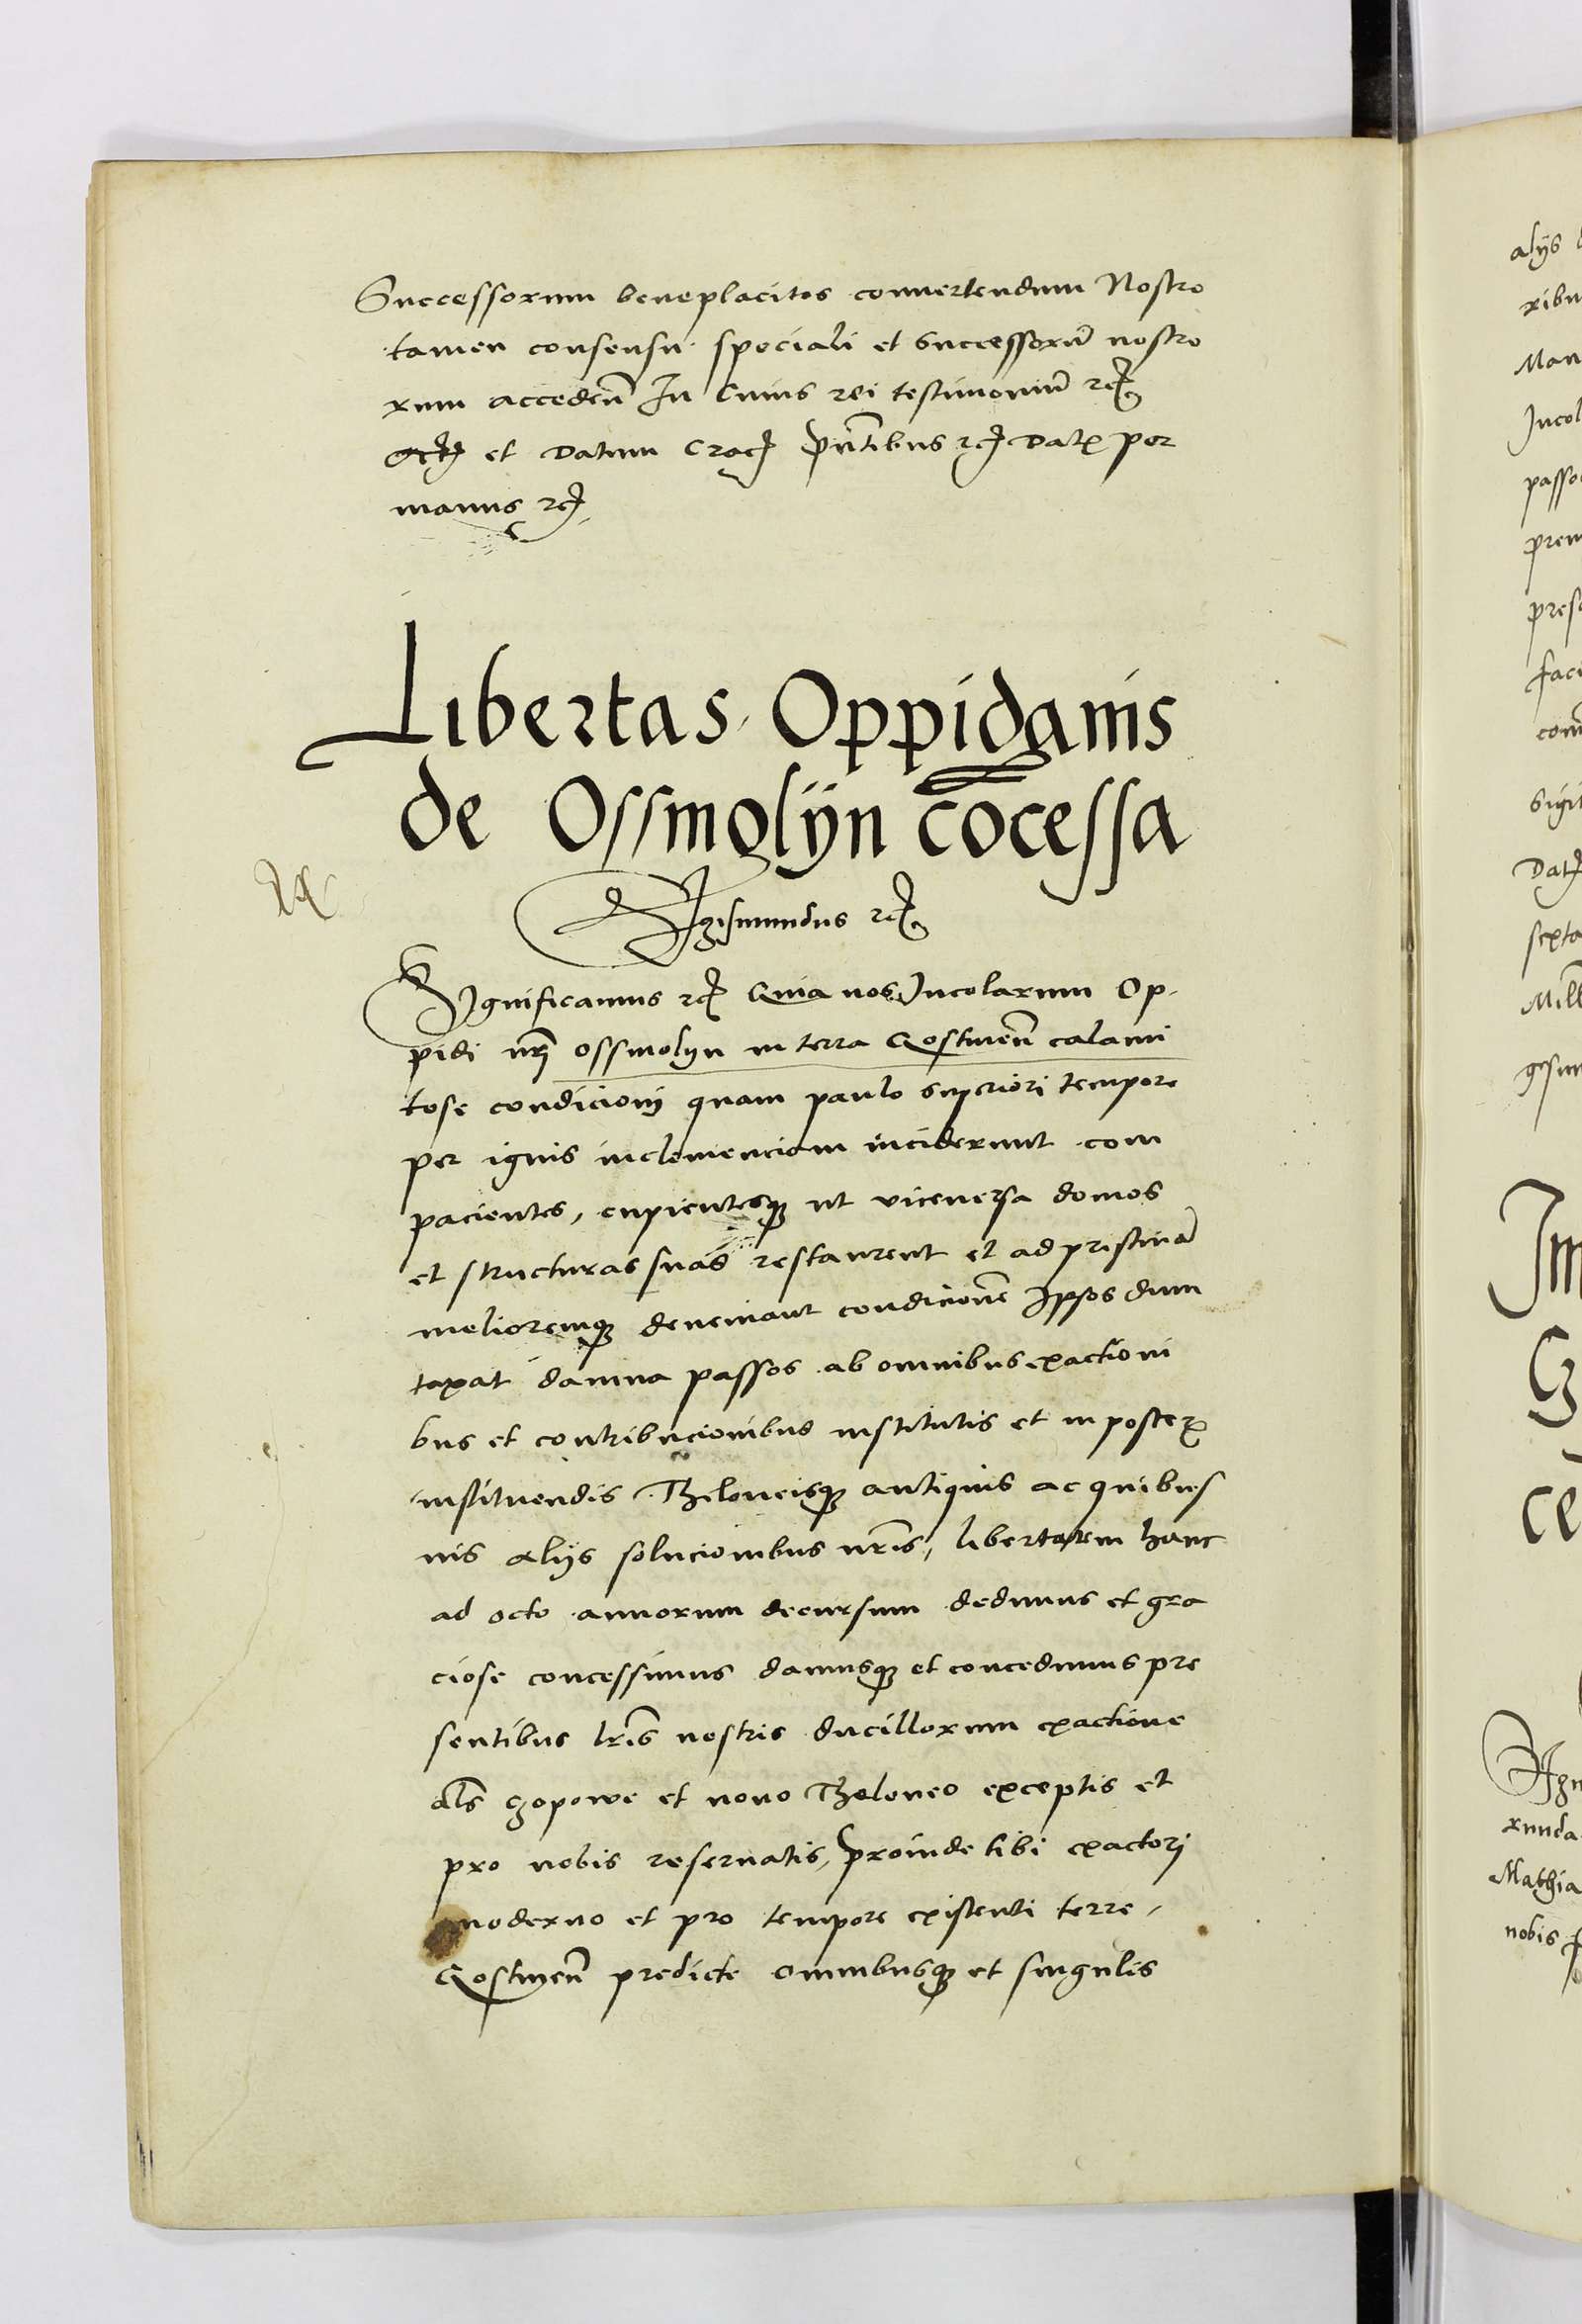 Successorum beneplacitos conuertendum Nostro
tamen consensu speciali et Successorũ nostro
rum acceden̄ In Cuius rei testimoniũ etc
et Datum Crac p̄ntibus etc Dat per
manus etc
Libertas Oppidanis
de Ossmolÿn cōcessa
Sigismundus etc
Significamus etc Quia nos Incolarum Op-
pidi nr̄i ossmolyn in terra Gostinen̄ calami
tose condicioni quam paulo superiori tempore
per ignis inclemenciam inciderunt com
pacientes, cupientesq; ut viceuersa domos
et structuras suas restaurent et ad pristinā
melioremq; deueniant condicionē Ipsos dum
taxat damna passos ab omnibus exactioni
bus et contribucionibus institutis et in poster
instituendis Theloneisq; antiquis ac quibus
uis alijs solucionibus nr̄is, libertatem hanc
ad octo annorum decursum dedimus et gra
ciose concessimus damusq; et concedimus pre
sentibus lr̄is nostris ducillorum exactione
al̄s czopowe et nouo Theloneo exceptis et
pro nobis reseruatis, proinde tibi exactori
moderno et pro tempore existenti terre
Gostinen̄ predicte omnibusq; et singulis
alijs
ribu
Man
Incol
passo
prem
pres
faci
sigil
Dat
sexta
Mill
gesim
Im
G
ce
runda
Mathia
nobis